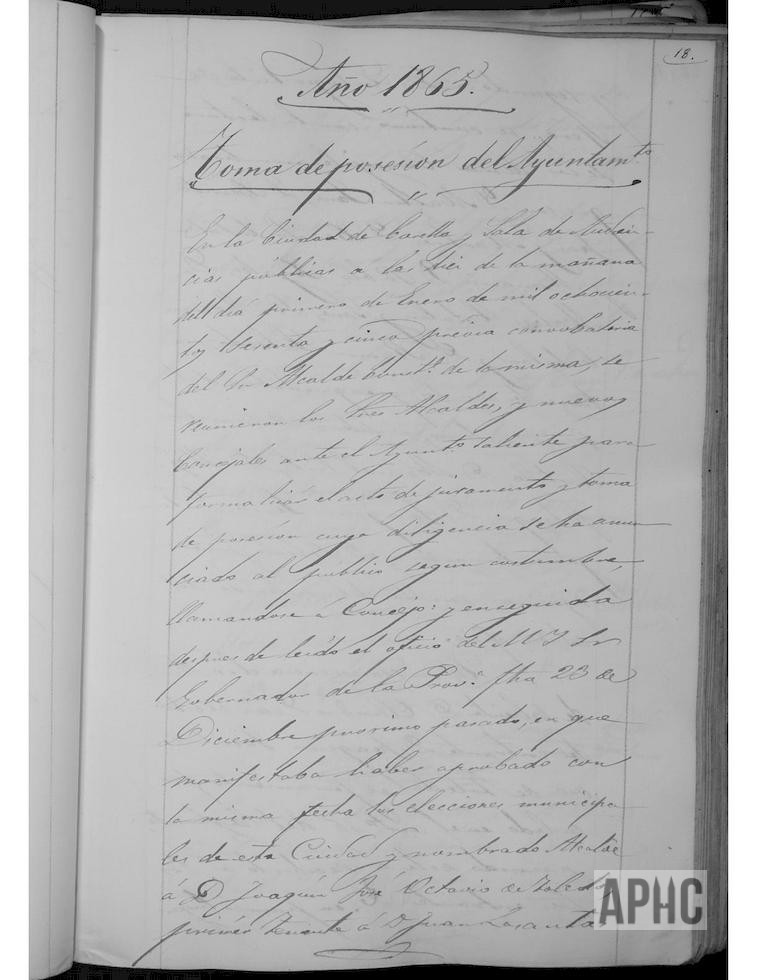 18.
Año 1865.
Toma de posesion del Ayuntam.to
En la Ciudad de Corella y Sala de Audien-
cias públicas a las diez de la mañana
del dia primero de Enero de mil ochocien-
tos sesenta y cinco previa convocatoria
del Sr Alcalde Const.l de la misma, se
reunieron los Sres Alcaldes, y nuevos
Concejales ante el Ayunt.o saliente para
formalizar el acto de juramento y toma
de posesion cuya diligencia se ha anun
ciado al publico segun costumbre,
llamandose á Concejo: y enseguida
despues de leido el oficio del M I Sr
Gobernador de la Prov.a fha 23 de
Diciembre proximo pasado, en que
manifestaba haber aprobado con
la misma fecha las elecciones municipa
les de esta Ciudad y nombrado Alcalde
á D Joaquin José Octavio de Toledo
primer Teniente á D Juan Lasanta
APHC